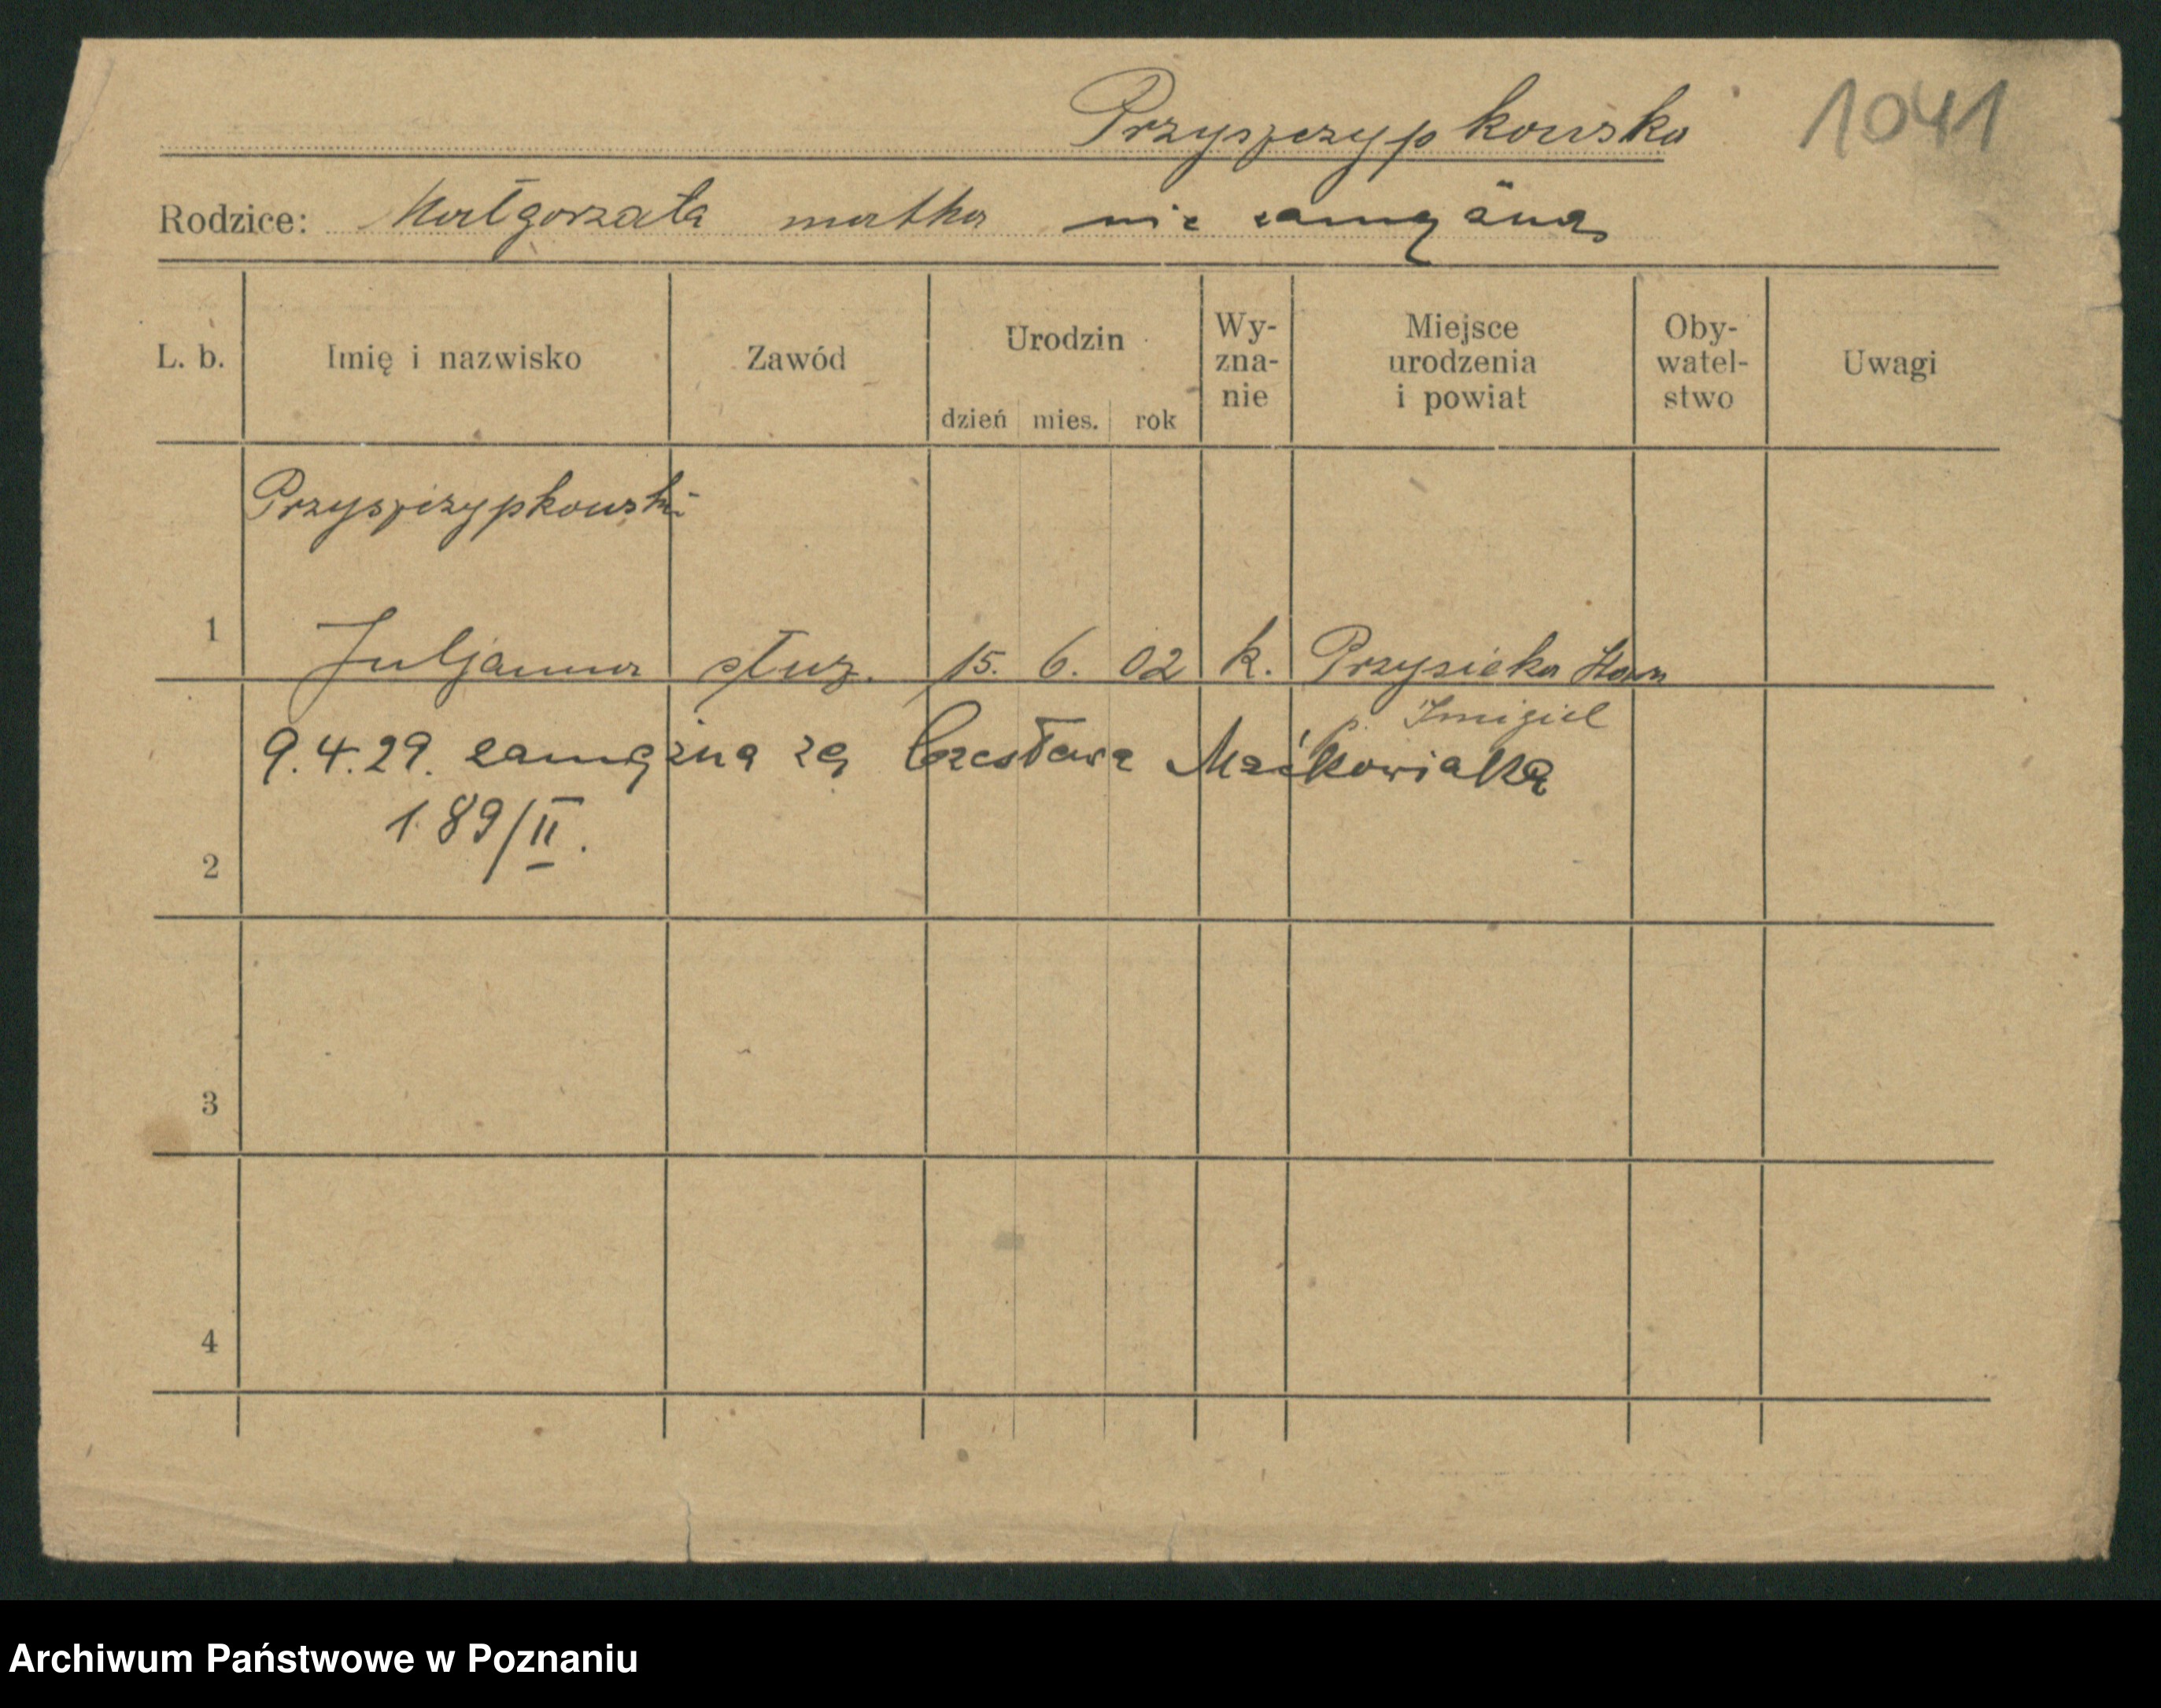 Przyszczypkowska 1041
Rodzice: Małgorzata matka nie zamężna
L. b. Imię i nazwisko Zawód Urodzin Wy- zna- nie Miejsce urodzenia i powiat Oby- watel- stwo Uwagi
dzień mies. rok
Przyszczypkowski
1 Juljanna służ. 15. 6. 02 k. Przysieka Star
p. Śmigiel
9.4.29. zamężna za Czesława Maćkowiaka
189/II.
2
3
4
Archiwum Państwowe w Poznaniu